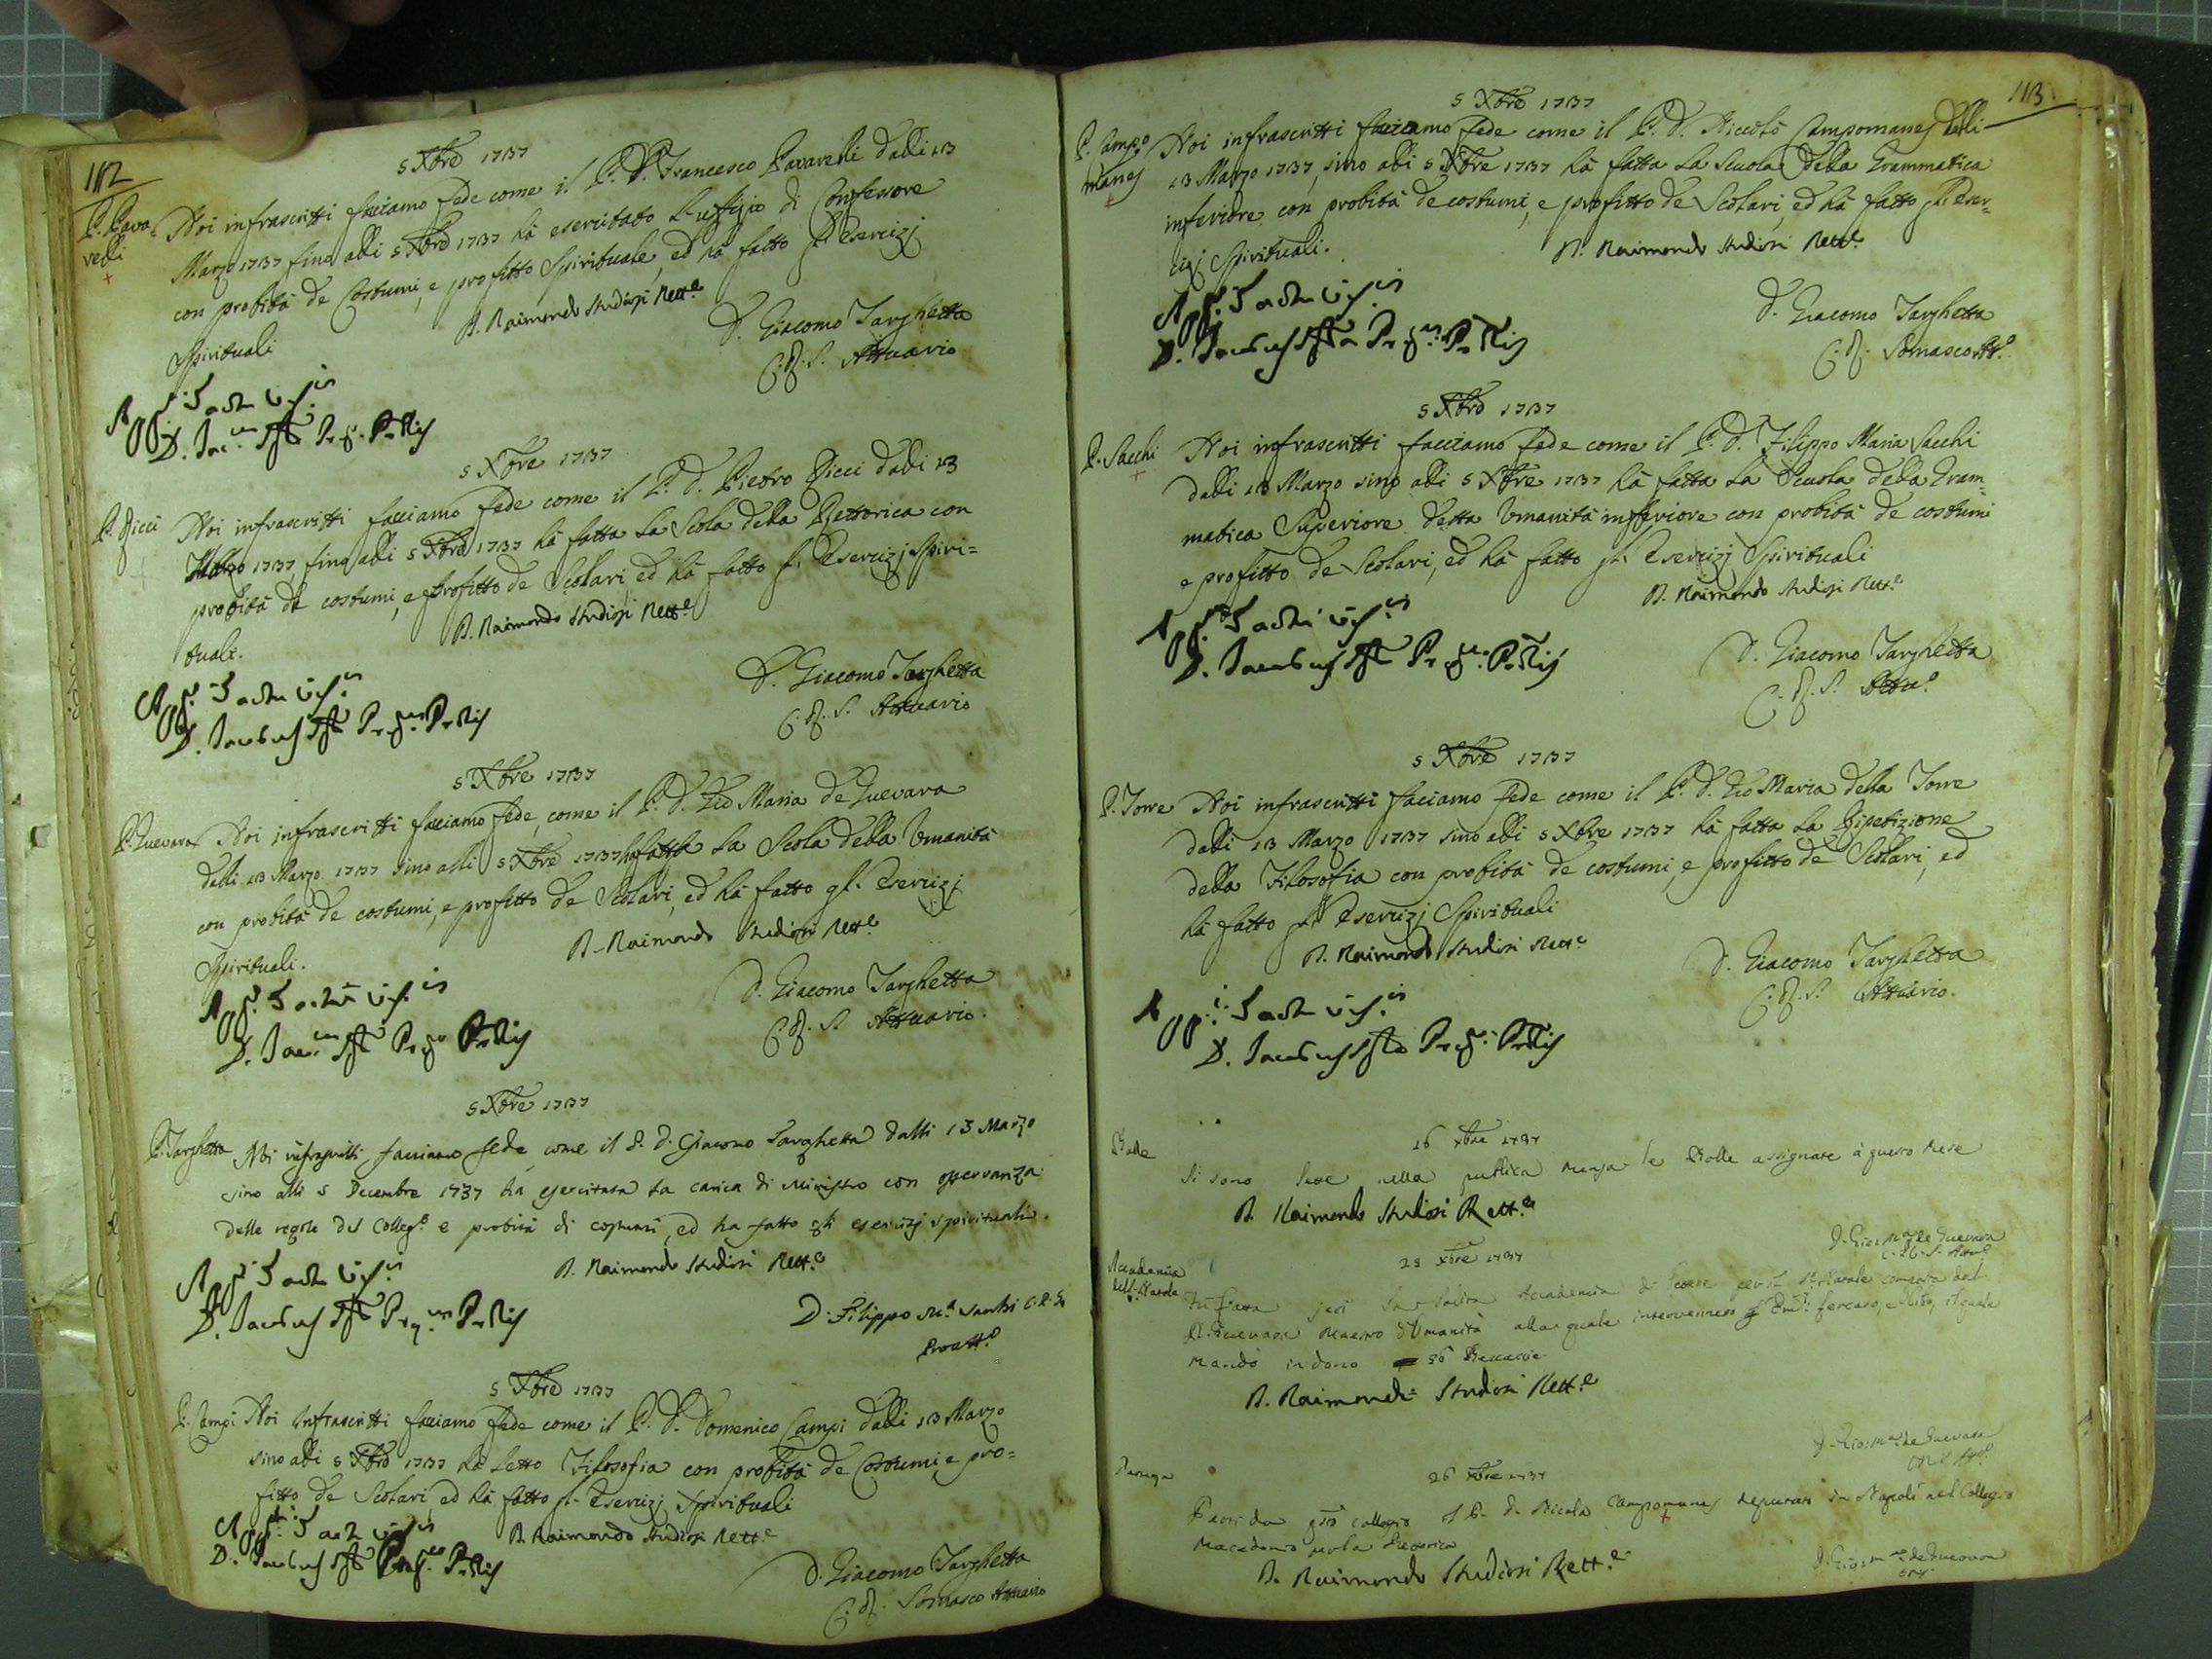 112
5 Xbre 1737
P. Rava-
velli
Noi infrascritti facciamo fede come il P. D. Francesco Ravavelli dalli 13
Marzo 1737 sino alli 5 Xbre 1737 hà esercitato l'uffizio di Confessore
con probità de Costumi, e profitto Spirituale, ed hà fatto gl'Esercizj
Spirituali
D. Raimondo Studiosi Rett.e
D. Giacomo Targhetta
C. R. S. Attuario
5 Xbre 1737
P. Ricci
Noi infrascritti facciamo fede come il P. D. Pietro Ricci dalli 13
Marzo 1737 sino alli 5 Xbre 1737 hà fatta la Scola della Rettorica con
probità de costumi, e profitto de Scolari ed hà fatto gl'Esercizj Spiri=
tuali.
D. Raimondo Studiosi Rett.e
D. Giacomo Targhetta
C. R. S. Attuario
5 Xbre 1737
P. Guevara
Noi infrascritti facciamo fede, come il P. D. Gio Maria de Guevara
dalli 13 Marzo 1737 sino alli 5 Xbre 1737 hà fatta la Scola della Umanità
con probità de costumi, e profitto de Scolari, ed hà fatto gl'Esercizj
Spirituali.
D. Raimondo Studiosi Rett.e
D. Giacomo Targhetta
C. R. S. Attuario.
5 Xbre 1737
P. Targhetta
Noi infrascritti facciamo fede, come il P. D. Giacomo Targhetta dalli 13 Marzo
sino alli 5 Decembre 1737 ha esercitata la carica di Ministro con osservanza
delle regole del Colleg.o e probità di costumi, ed ha fatto gli esercizj spirituali.
D. Raimondo Studiosi Rett.e
D. Filippo M.a Sacchi C. R. S.
Proatt.o
5 Xbre 1737
P. Campi
Noi Infrascritti facciamo fede come il P. D. Domenico Campi dalli 13 Marzo
sino alli 5 Xbre 1737 hà letto Filosofia con probità de Costumi, e pro=
fitto de Scolari ed hà fatto gl'Esercizj Spirituali
D. Raimondo Studiosi Rett.e
D. Giacomo Targhetta
C. R. Somasco Attuario
113
5 Xbre 1737
P. Campo
manes
Noi infrascritti facciamo fede come il P. D. Niccolò Campomanes dalli
13 Marzo 1737, sino alli 5 Xbre 1737 hà fatta la Scuola della Grammatica
inferiore con probità de costumi, e profitto de Scolari, ed hà fatto gl'Eser=
cizj Spirituali.
D. Raimondo Studiosi Rett.e
D. Giacomo Targhetta
C. R. Somasco Att.o
5 Xbre 1737
P. Sacchi
Noi infrascritti facciamo fede come il P. D. Filippo Maria Sacchi
dalli 13 Marzo sino alli 5 Xbre 1737 hà fatta la Scuola della Gram=
matica Superiore detta Umanità inferiore con probità de costumi
e profitto de Scolari, ed hà fatto gl'Esercizj Spirituali
D. Raimondo Studiosi Rett.e
D. Giacomo Targhetta
C. R. S. Attu.o
5 Xbre 1737
P. Torre
Noi infrascritti facciamo fede come il P. D. Gio Maria della Torre
dalli 13 Marzo 1737 sino alli 5 Xbre 1737 hà fatta la Ripetizione
della Filosofia con probità de costumi, e profitto de Scolari, ed
hà fatto gl'Esercizj Spirituali
D. Raimondo Studiosi Rett.e
D. Giacomo Targhetta
C. R. S. Attuario.
Bolle
16 Xbre 1737
Si sono lette nella publica mensa le Bolle assignate à questo Mese
D. Raimondo Studiosi Rett.e
D. Gio: M.a de Guevara
C. R. S. Att.o
Accademia
del S. Natale
25 Xbre 1737
Fù fatta jeri la solita Accademia di lettere per il S. Natale composta dal
P. Guevara Maestro d'Umanità alla quale intervennero
mandò in dono 56
D. Raimondo Studiosi Rett.e
D. Gio: M.a de Guevara
26 Xbre 1737
Partì da q.sto collegio il P. D. Nicola Campomanes deputato in Napoli nel Collegio
Macedonio
D. Raimondo Studiosi Rett.e
D. Gio: M.a de Guevara